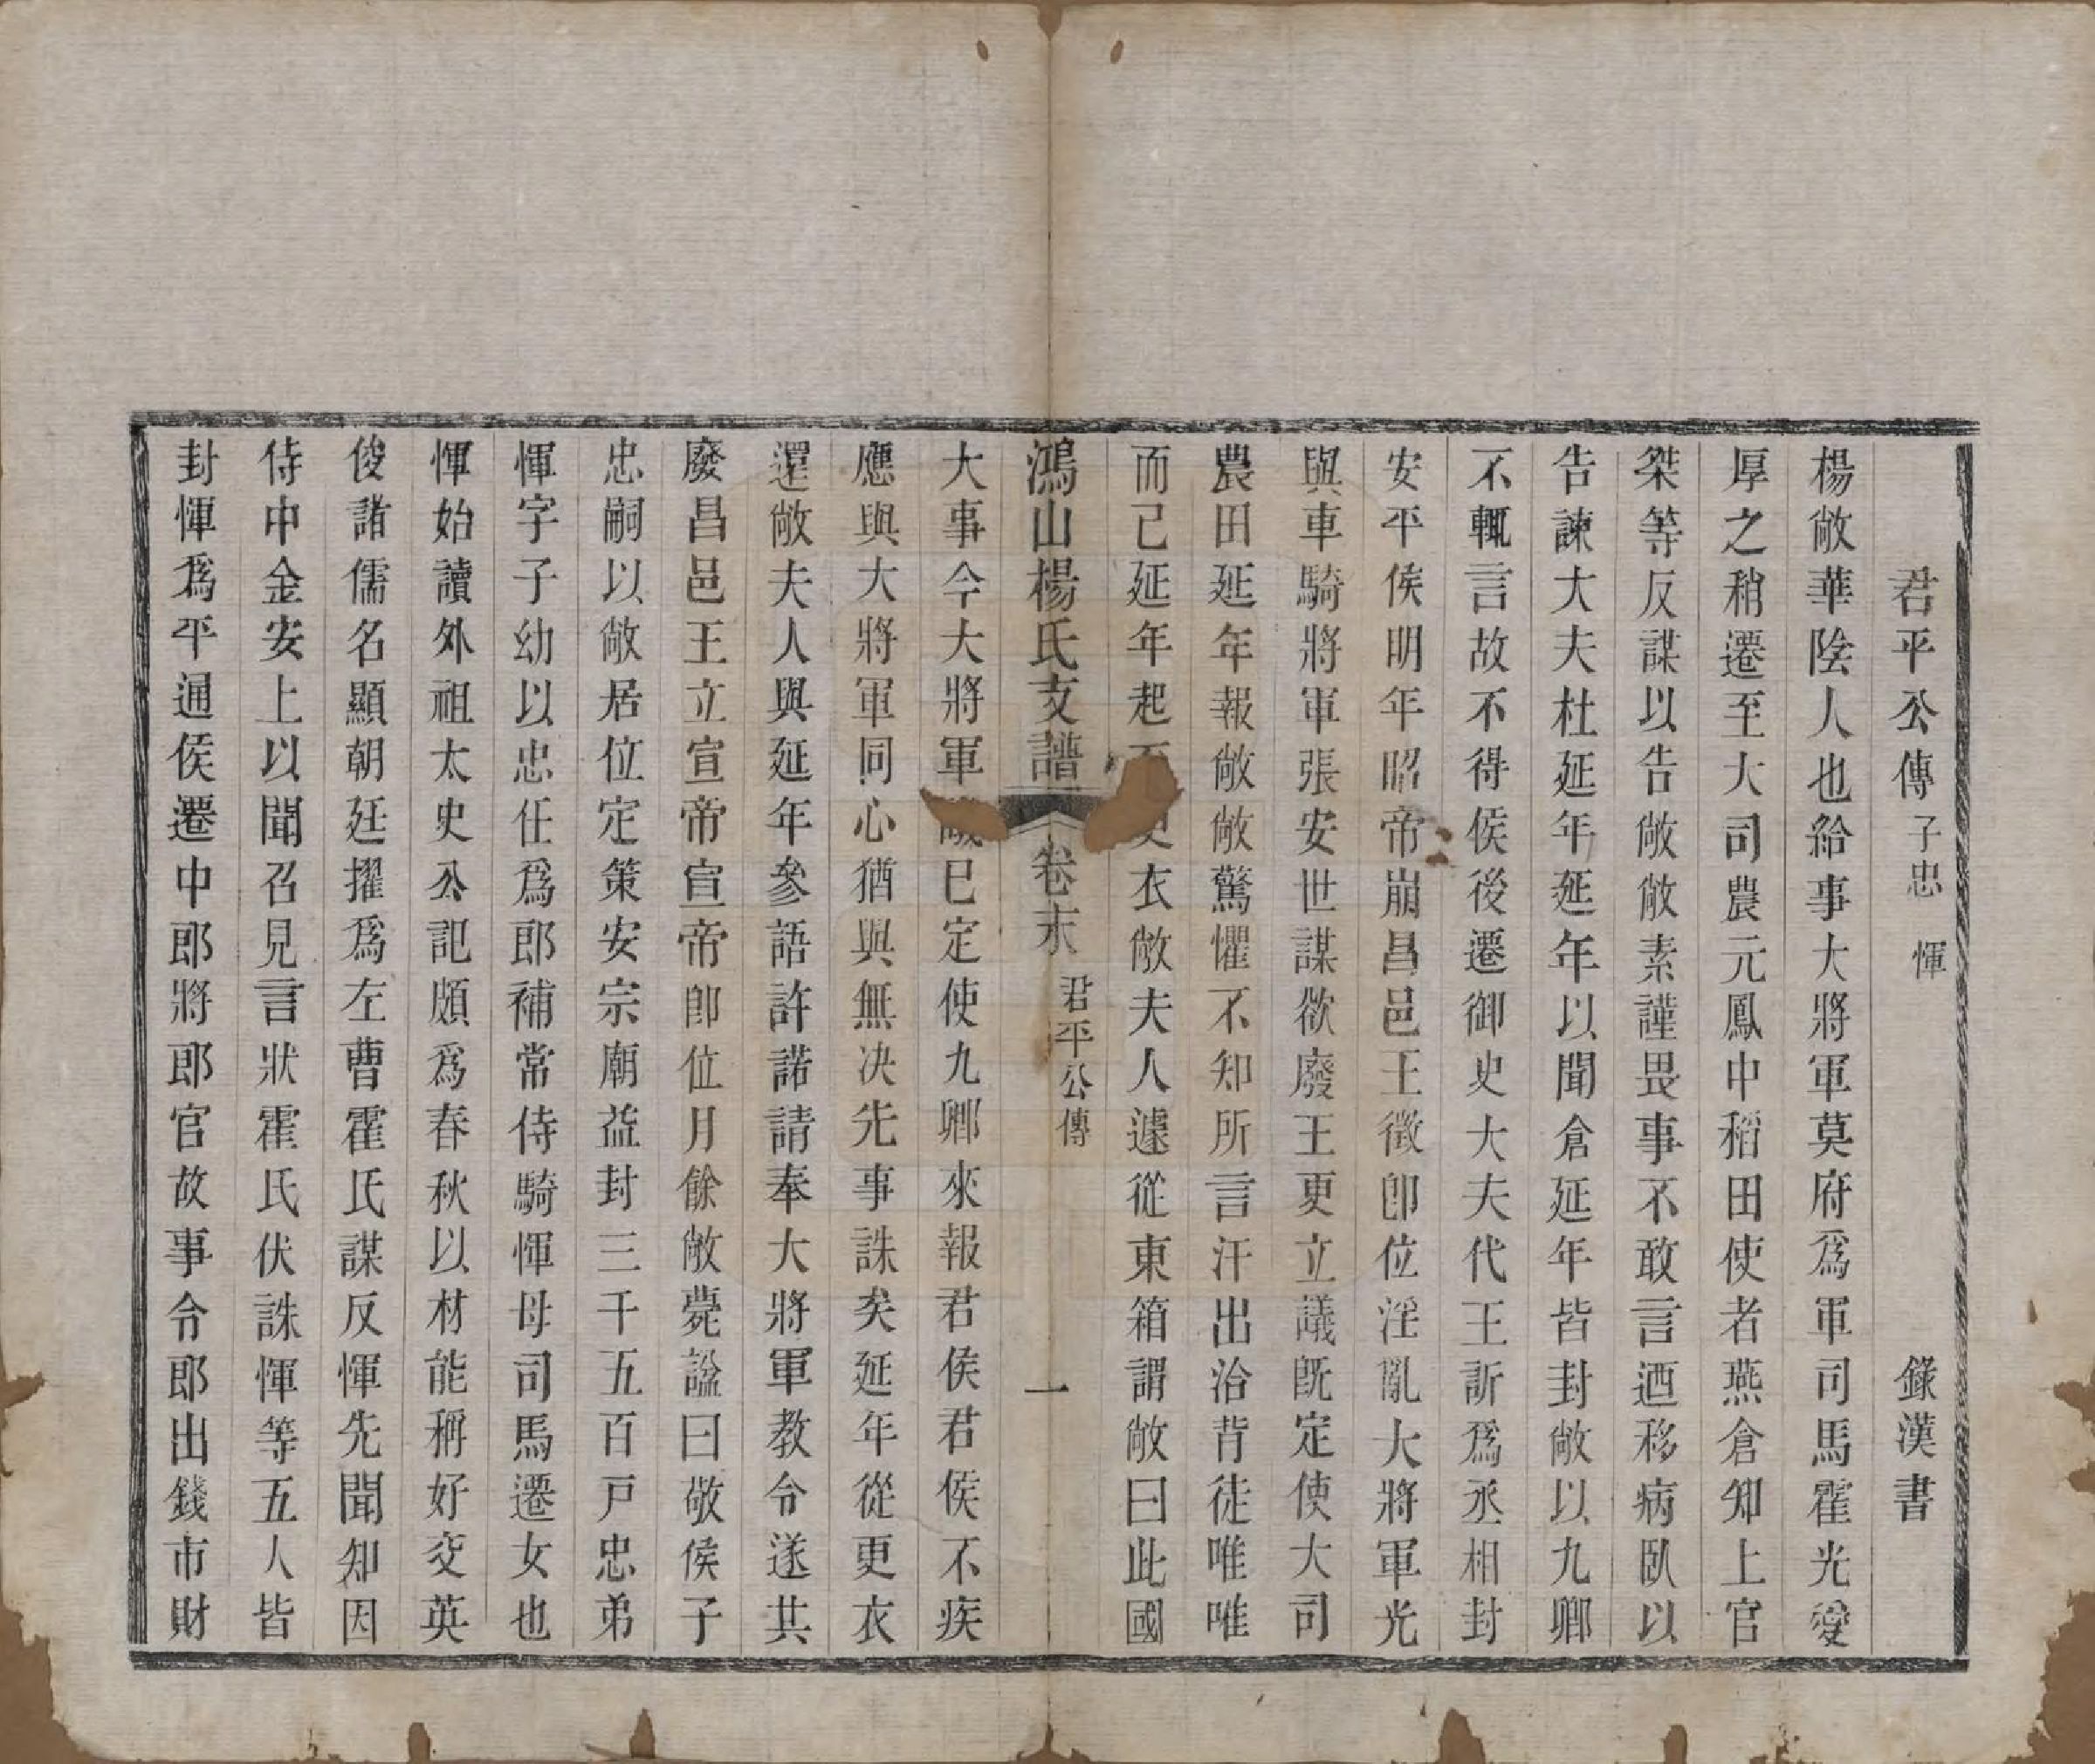 君平公傳 子忠 惲 錄漢書
楊敞華陰人也給事大將軍莫府爲軍司馬霍光愛
厚之稍遷至大司農元鳳中稻田使者燕倉知上官
桀等反謀以告敞敞素謹畏事不敢言迺移病臥以
告諫大夫杜延年延年以聞倉延年皆封敞以九卿
不輒言故不得侯後遷御史大夫代王訢爲丞相封
安平侯明年昭帝崩昌邑王徵卽位淫亂大將軍光
與車騎將軍張安世謀欲廢王更立議旣定使大司
農田延年報敞敞驚懼不知所言汗出洽背徒唯唯
而已延年起至更衣敞夫人遽從東箱謂敞曰此國
鴻山楊氏支譜 卷末 君平公傳 一
大事今大將軍議已定使九卿來報君侯君侯不疾
應與大將軍同心猶與無决先事誅矣延年從更衣
還敞夫人與延年參語許諾請奉大將軍教令遂共
廢昌邑王立宣帝宣帝卽位月餘敞薨謚曰敬侯子
忠嗣以敞居位定策安宗廟益封三千五百戸忠弟
惲字子幼以忠任爲郎補常侍騎惲母司馬遷女也
惲始讀外祖太史公記頗爲春秋以材能稱好交英
俊諸儒名顯朝廷擢爲左曹霍氏謀反惲先聞知因
侍中金安上以聞召見言狀霍氏伏誅惲等五人皆
封惲爲平通侯遷中郎將郎官故事令郎出錢市財